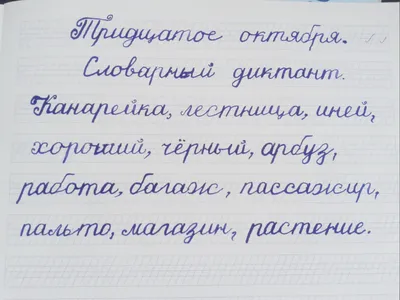 Тридцатое октября.
Словарный диктант.
Канарейка, лестница, иней,
хороший, чёрный, арбуз,
работа, багаж, пассажир,
пальто, магазин, растение.